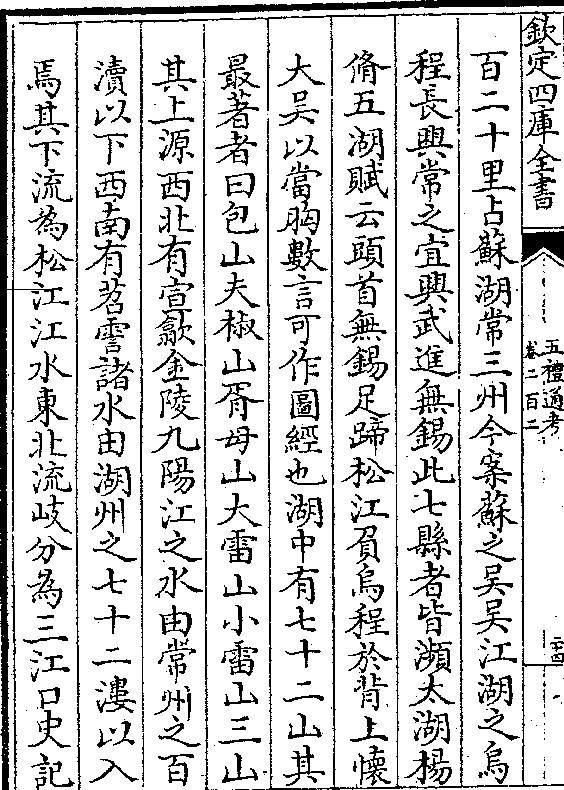 欽定四庫全書
五禮通考
卷二百二
二十四
百二十里占蘇湖常三州今案蘇之吳吳江湖之烏
程長興常之宜興武進無錫此七縣者皆瀕太湖楊
脩五湖賦云頭首無錫足蹄松江負烏程於背上懷
大吳以當胸數言可作圖經也湖中有七十二山其
最著者曰包山夫椒山胥母山大雷山小雷山三山
其上源西北有宣歙金陵九陽江之水由常州之百
瀆以下西南有苕霅諸水由湖州之七十二漊以入
焉其下流為松江江水東北流岐分為三江口史記